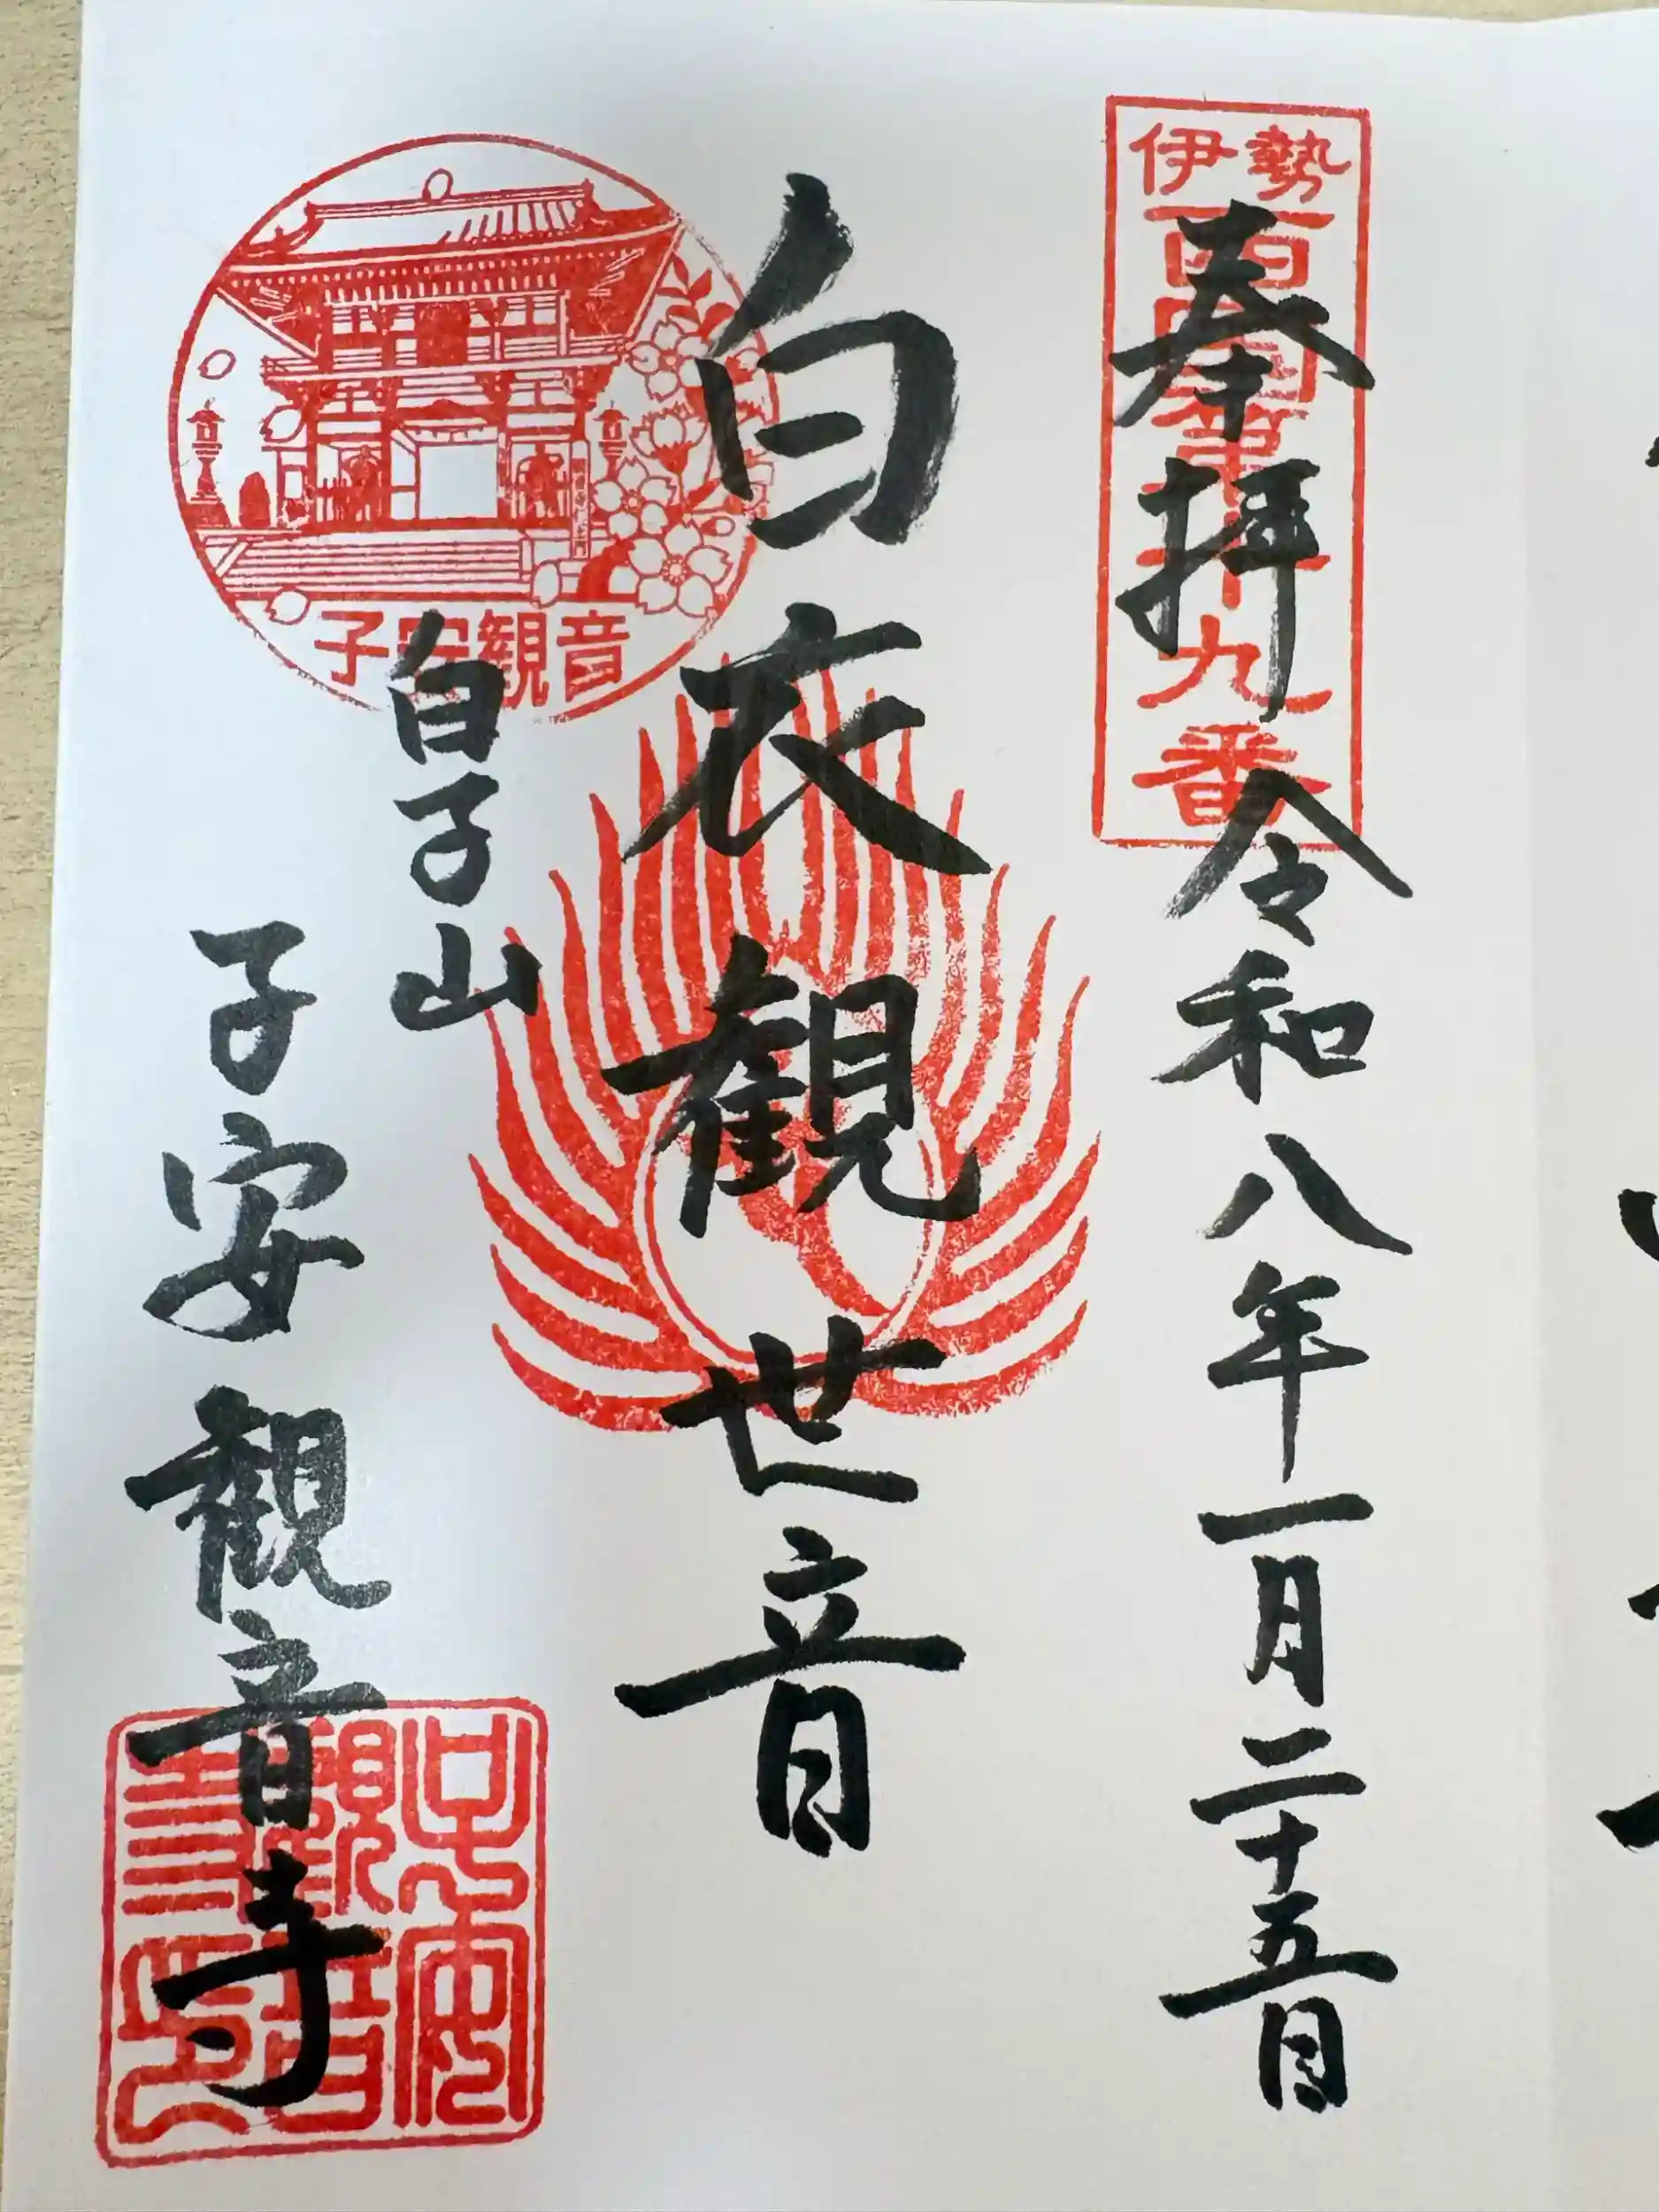 伊勢
西国第十九番
奉拝 令和八年一月二十五日
白衣観世音
子安観音
白子山
子安観音寺
子安
觀音
寺印